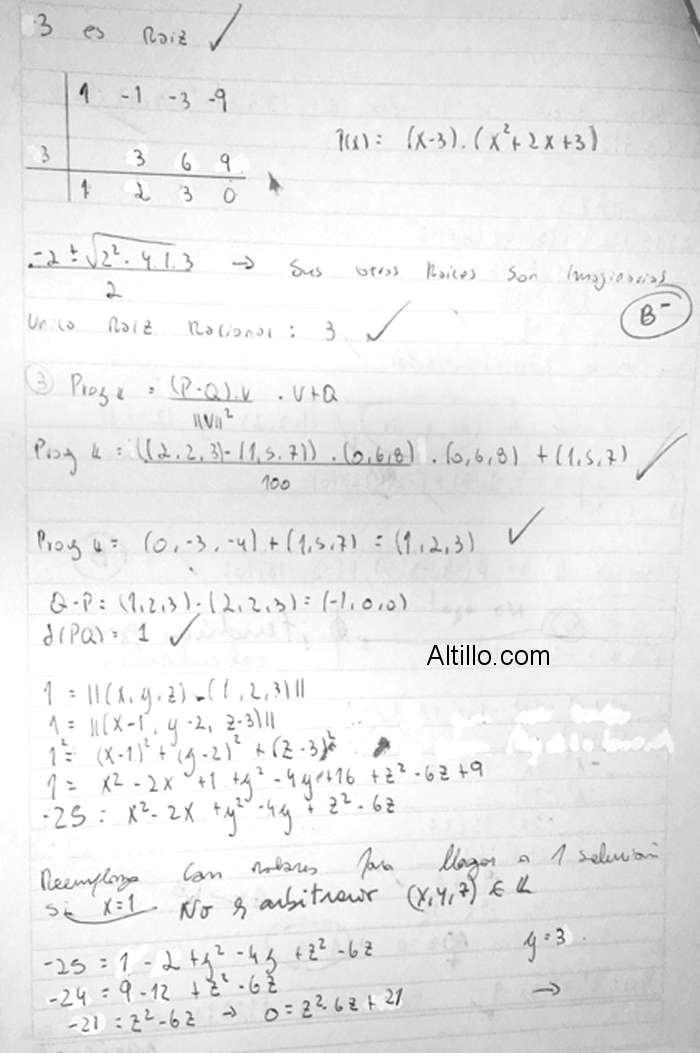 3 es Raiz ✓
1 -1 -3 -9
3 3 6 9
1 2 3 0
P(x) = (x-3).(x²+2x+3)
-2 ± √2² - 4.1.3 / 2 → Sus otras Raices son imaginarias
B-
Unica Raiz Racional : 3 ✓
③ Proy u = (P-Q).V / ||V||² . V+Q
Proy u = ((2,2,3)-(1,5,7)).(0,6,8) / 100 . (0,6,8) + (1,5,7) ✓
Proy u = (0,-3,-4)+(1,5,7) = (1,2,3) ✓
Q-P = (1,2,3)-(2,2,3) = (-1,0,0)
d(PQ) = 1 ✓
Altillo.com
1 = ||(x,y,z)-(1,2,3)||
1 = ||(x-1, y-2, z-3)||
1² = (x-1)²+(y-2)²+(z-3)²
1 = x²-2x+1+y²-4y+16+z²-6z+9
-25 = x²-2x+y²-4y+z²-6z
Reemplazo con valores para llegar a 1 solución
Si x=1 No es arbitrario (x,y,z) ∈ u
-25 = 1-2+y²-4y+z²-6z y=3
-24 = 9-12+z²-6z
-21 = z²-6z → 0 = z²-6z+21 →